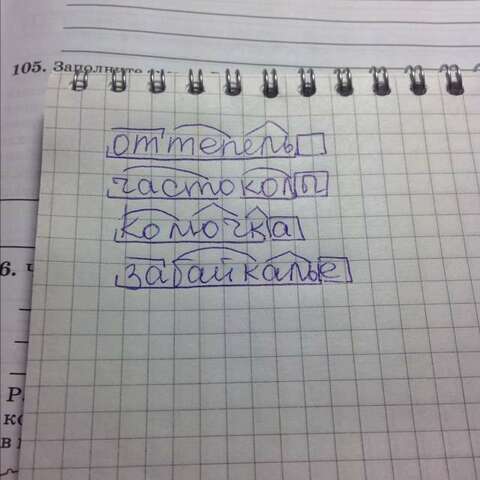 105. Заполните
оттепель
частоколы
колючка
забайкалье
6.
Р
в